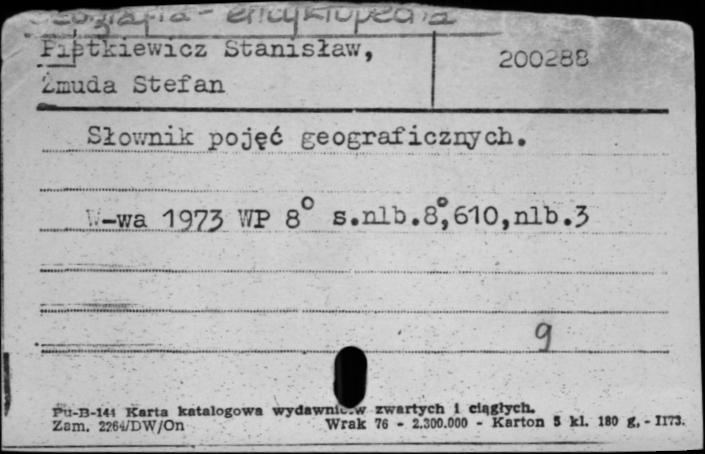 Geografia - encyklopedia
Piętkiewicz Stanisław, 200288
Żmuda Stefan
Słownik pojęć geograficznych.
W-wa 1973 WP 8° s.nlb.8°,610,nlb.3
9
Pu-B-144 Karta katalogowa wydawnic w zwartych i ciągłych.
Zam. 2264/DW/On Wrak 76 - 2.300.000 - Karton 5 kl. 180 g. - II73.